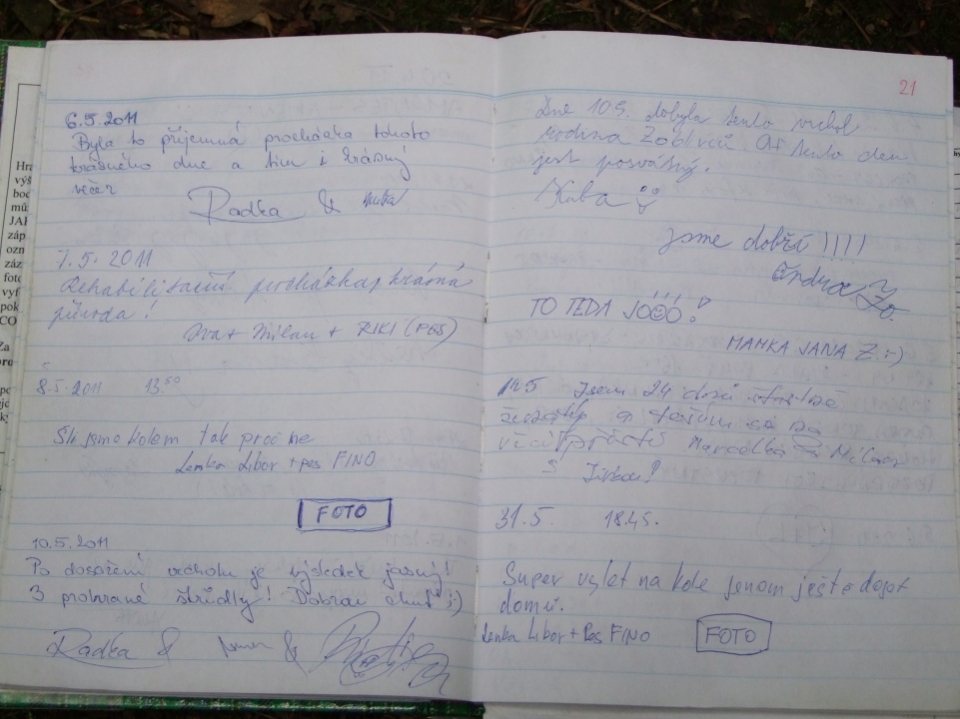 6.5.2011
Byla to příjemná procházka tohoto
krásného dne a tím i krásný
večer
Radka &
7.5.2011
Rehabilitační procházka, krásná
příroda!
Iva + Milan + RIKI (PES)
8.5.2011 13.50
Šli jsme kolem tak proč ne
Lenka Libor + pes FINO
FOTO
10.5.2011
Po dosažení vrcholu je výsledek jasný!
3 prohrané štrúdly! Dobrou chuť :)
Radka & &
21
Dne 10.5. dobyla tento vrchol
rodina Zoblivců. Ať tento den
jest posvátný.
Kuba
Jsme dobří !!!!
Ondra Zo.
TO TEDA JOOO!
MAMKA JANA Z :-)
Jsem 24 dnů
a
věcí příští Narodila Milan
S Jirkou!
31.5. 18.45.
Super výlet na kole jenom ještě dojet
domů.
Lenka Libor + Pes FINO
FOTO